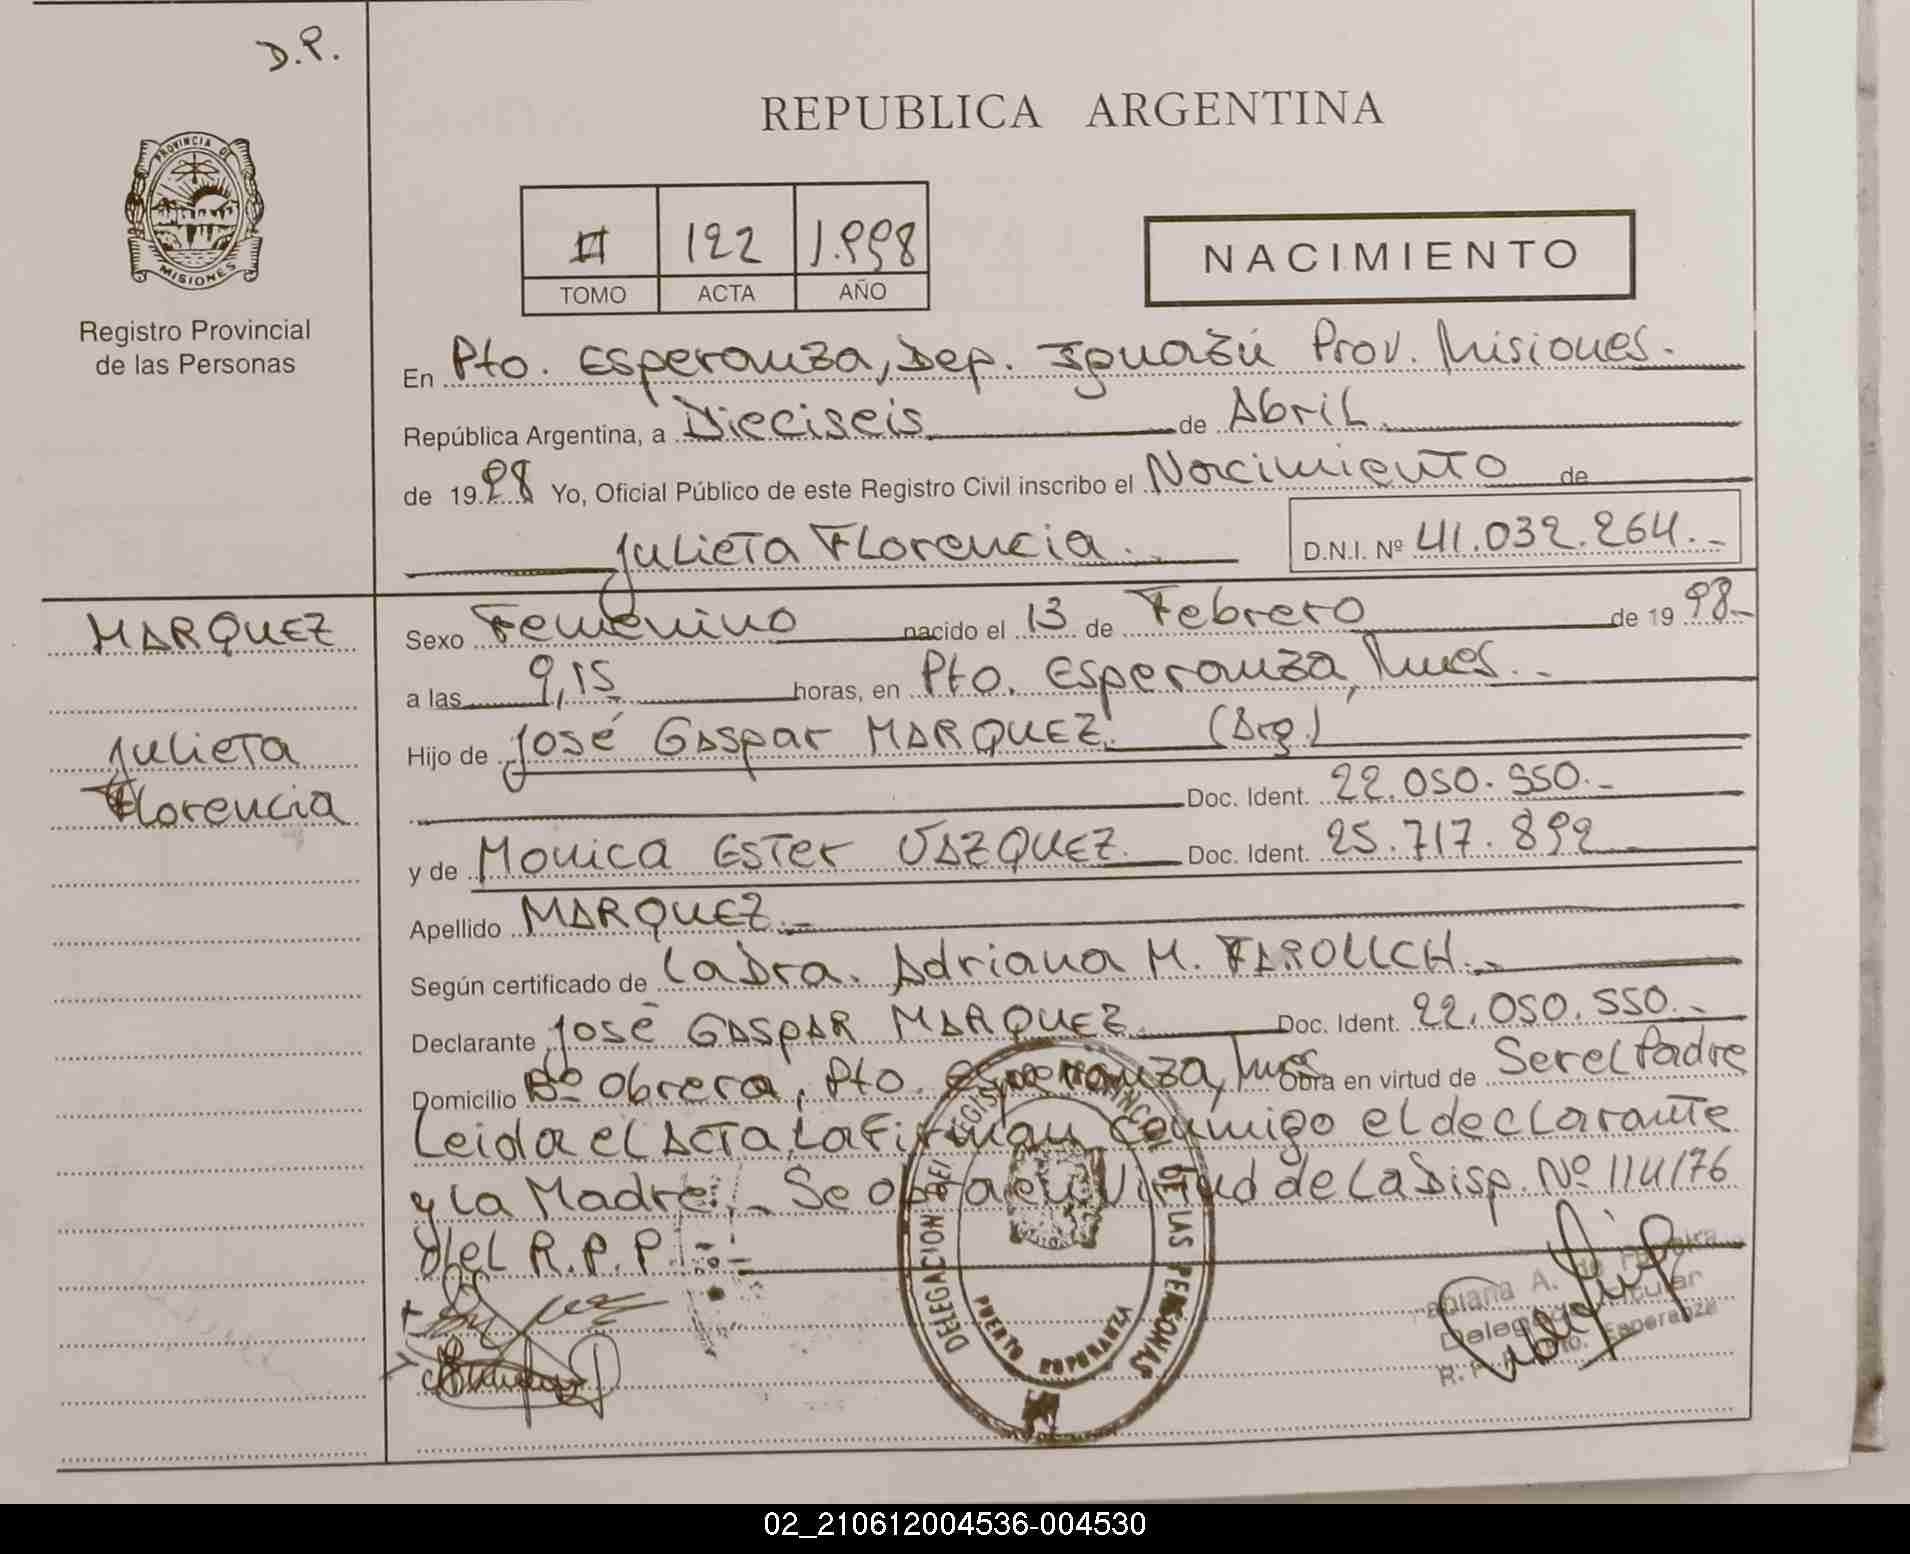 D.P.
PROVINCIA DE
MISIONES
Registro Provincial
de las Personas
REPUBLICA ARGENTINA
II 122 1.998
TOMO ACTA AÑO
NACIMIENTO
En Pto. Esperanza, Dep. Iguazú Prov. Misiones.
República Argentina, a Dieciseis de Abril
de 1998 Yo, Oficial Público de este Registro Civil inscribo el Nacimiento de
Julieta Florencia.
D.N.I. Nº 41.032.264.-
MARQUEZ
Julieta
Florencia
Sexo Femenino nacido el 13 de Febrero de 1998-
a las 9,15 horas, en Pto. Esperanza, Mnes.-
Hijo de José Gaspar MARQUEZ. (Arg.)
Doc. Ident. 22.050.550.-
y de Monica Ester VAZQUEZ. Doc. Ident. 25.717.892
Apellido MARQUEZ.-
Según certificado de La Dra. Adriana M.
Declarante José GASPAR MARQUEZ Doc. Ident. 22.050.550.-
Domicilio Bº Obrera, Pto. Esperanza, Mnes Obra en virtud de Ser el Padre
Leida el Acta, La Firman conmigo el declarante
y La Madre.- Se obra en Virtud de La Disp. Nº 114/76
del R.P.P.
DELEGACION DEL REGISTRO PROVINCIAL DE LAS PERSONAS
PUERTO ESPERANZA
Delegada Titular
Esperanza
02_210612004536-004530